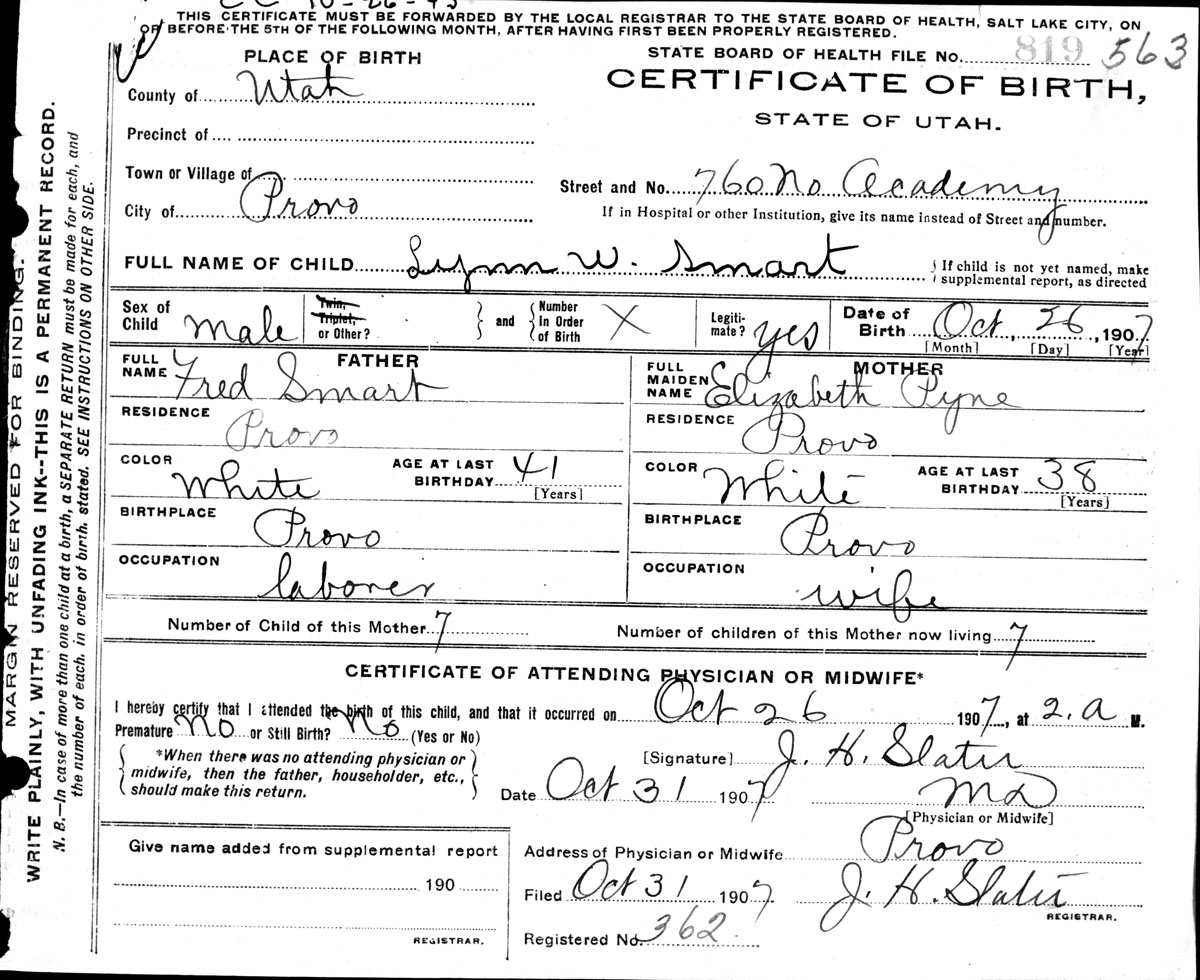 CC 10-26-43
THIS CERTIFICATE MUST BE FORWARDED BY THE LOCAL REGISTRAR TO THE STATE BOARD OF HEALTH, SALT LAKE CITY, ON
OR BEFORE THE 5TH OF THE FOLLOWING MONTH, AFTER HAVING FIRST BEEN PROPERLY REGISTERED.
PLACE OF BIRTH
STATE BOARD OF HEALTH FILE No. 819 563
CERTIFICATE OF BIRTH,
STATE OF UTAH.
County of Utah
Precinct of
Town or Village of
City of Provo
Street and No. 760 No Academy
If in Hospital or other Institution, give its name instead of Street and number.
FULL NAME OF CHILD Lynn W. Smart
{ If child is not yet named, make
supplemental report, as directed
Sex of Child Male
Twin, Triplet, or Other?
and { Number In Order of Birth X
Legitimate? yes
Date of Birth Oct, 26, 1907
[Month] [Day] [Year]
FATHER
FULL NAME Fred Smart
RESIDENCE Provo
COLOR White
AGE AT LAST BIRTHDAY 41 [Years]
BIRTHPLACE Provo
OCCUPATION laborer
MOTHER
FULL MAIDEN NAME Elizabeth Pyne
RESIDENCE Provo
COLOR White
AGE AT LAST BIRTHDAY 38 [Years]
BIRTHPLACE Provo
OCCUPATION wife
Number of Child of this Mother 7
Number of children of this Mother now living 7
CERTIFICATE OF ATTENDING PHYSICIAN OR MIDWIFE*
I hereby certify that I attended the birth of this child, and that it occurred on Oct 26 1907, at 2. a M.
Premature No or Still Birth? No (Yes or No)
*When there was no attending physician or
midwife, then the father, householder, etc.,
should make this return.
[Signature] J. H. Slater
Date Oct 31 1907 MD
[Physician or Midwife]
Give name added from supplemental report
190
REGISTRAR.
Address of Physician or Midwife Provo
Filed Oct 31 1907 J. H. Slater
REGISTRAR.
Registered No. 362
MARGIN RESERVED FOR BINDING.
WRITE PLAINLY, WITH UNFADING INK--THIS IS A PERMANENT RECORD.
N. B.—In case of more than one child at a birth, a SEPARATE RETURN must be made for each, and
the number of each, in order of birth, stated. SEE INSTRUCTIONS ON OTHER SIDE.